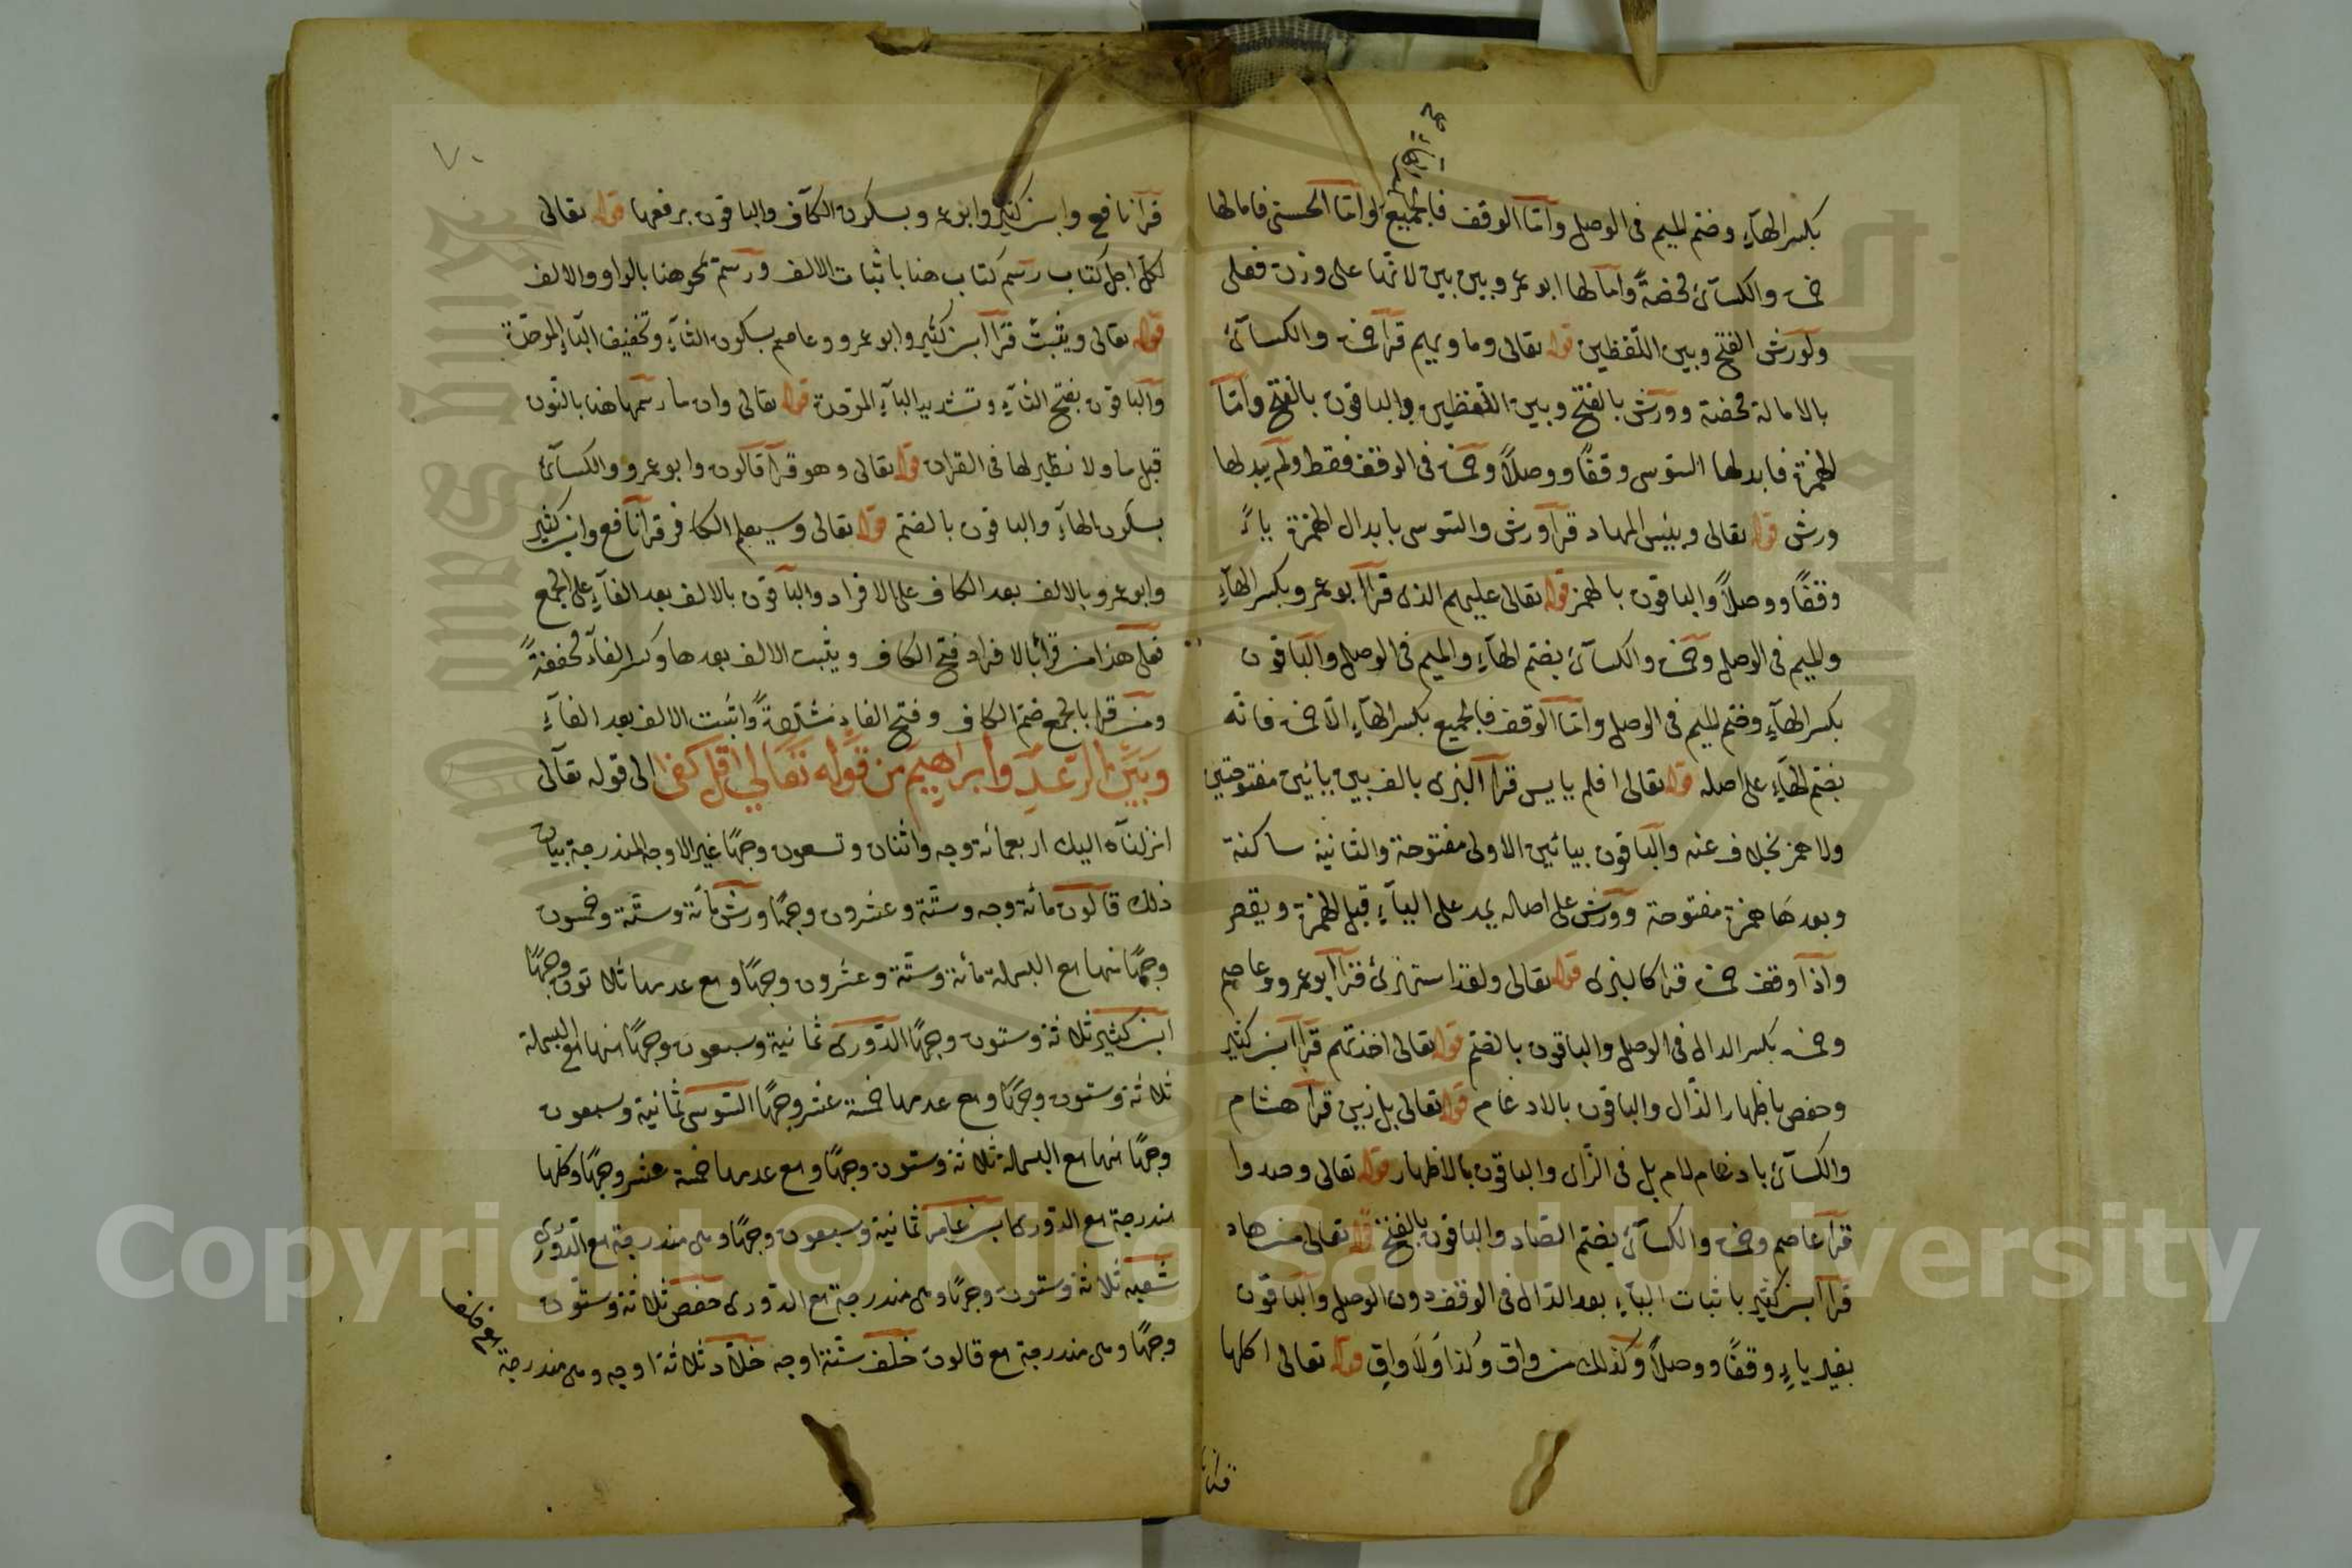 بكسر الهآءِ وضم الميم فى الوصل وأمّا الوقف فالجميع وامّا الحسنى فامالها
حمزة والكسآئ محضةً وامالها ابو عمرو بين بين لانها على وزن فعلى
ولورش الفتح وبين اللّفظين قوله تعالى وماويهم قرأ حمزة والكسآئ
بالامالة محضة وورش بالفتح وبين اللّفظين والباقون بالفتح وأمّا
الهمزة فابدلها السّوسى وقفًا ووصلاً وحمزة فى الوقف فقط ولم يبدلها
ورش قوله تعالى وبئس المهاد قرأ ورش والسّوسى بابدال الهمزة ياءً
وقفًا ووصلاً والباقون بالهمز قوله تعالى عليهم الذى قرأ ابو عمرو بكسر الهآءِ
والميم فى الوصل وحمزة والكسآئ بضم الهآءِ والميم فى الوصل والباقون
بكسر الهآءِ وضم الميم فى الوصل وامّا الوقف فالجميع بكسر الهآءِ الاّ حمزة فانّه
بضم الهآءِ على اصله قوله تعالى افلم يايس قرأ البزى بالف بين يائين مفتوحتين
ولا همز بخلاف عنه والباقون بيائين الاولى مفتوحة والثانية ساكنة
وبعدها همزة مفتوحة وورش على اصاله يمد على اليآءِ قبل الهمزة ويقصر
واذا وقف حمزة قرا كالبزى قوله تعالى ولقد استهزئ قرأ ابو عمرو وعاصم
وحمزة بكسر الدال فى الوصل والباقون بالضم قوله تعالى اخذتهم قرأ ابن كثير
وحفص باظهار الذّال والباقون بالادغام قوله تعالى بل زين قرأ هشام
والكسآئ بادغام لام بل فى الزّاى والباقون بالاظهار قوله تعالى وصدوا
قرأ عاصم وحمزة والكسآئ بضم الصّاد والباقون بالفتح قوله تعالى من هاد
قرأ ابن كثير باثبات اليآءِ بعد الدّال فى الوقف دون الوصل والباقون
بغير ياءٍ وقفًا ووصلاً وكذلك من واق وكذا ولا واقٍ قوله تعالى اكلها
٧٠
قرأ نافع وابن كثير وابو عمرو بسكون الكآف والباقون برفعها قوله تعالى
لكل اجل كتاب رسم كتاب هنا باثبات الالف ورسم يمحو هنا بالواو والالف
قوله تعالى ويثبت قرأ ابن كثير وابو عمرو وعاصم بسكون الثآءِ وتخفيف البآءِ الموحّدة
والباقون بفتح الثآءِ وتشديد البآءِ الموّحدة قوله تعالى وان ما رسمها هنا بالنّون
قبل ما ولا نظير لها فى القران قوله تعالى وهو قرأ قالون وابو عمرو والكسآئ
بسكون الهآءِ والباقون بالضم قوله تعالى وسيعلم الكافر قرأ نافع وابن كثير
وابو عمرو بالالف بعد الكاف على الافراد والباقون بالالف بعد الفآءِ على الجمع
فعلى هذا من قرأ بالافراد فتح الكاف ويثبت الالف بعدها وكسر الفآء مخففةً
ومن قرا بالجمع ضم الكاف وفتح الفاءِ مشدّدةً واثبت الالف بعد الفآءِ
وبين الرعد وابراهيم من قوله تعالى قل كفى الى قوله تعالى
انزلنآه اليك اربعمائة وجه واثنان وتسعون وجهًا غير الاوجه المندرجة بيان
ذلك قالون مائة وجه وستّة وعشرون وجهًا ورش مائة وستّة وخمسون
وجهًا منها مع البسملة مائة وستّة وعشرون وجهًا ومع عدمها ثلاثون وجهًا
ابن كثير ثلاثة وستون وجهًا الدّورى ثمانية وسبعون وجهًا منها مع البسملة
ثلاثة وستون وجهًا ومع عدمها خمسة عشر وجهًا السّوسى ثمانية وسبعون
وجهًا منها مع البسملة ثلاثة وستون وجهًا ومع عدمها خمسة عشر وجهًا وكلها
مندرجة مع الدّورى ابن عامر ثمانية وسبعون وجهًا وهى مندرجة مع الدّورى
شعبه ثلاثة وستون وجهًا وهى مندرجة مع الدّورى حفص ثلاثة وستون
وجهًا وهى مندرجة مع قالون خلف ستّة اوجه خلاّد ثلاثة اوجه وهى مندرجة
مع خلف
Copyright © King Saud University